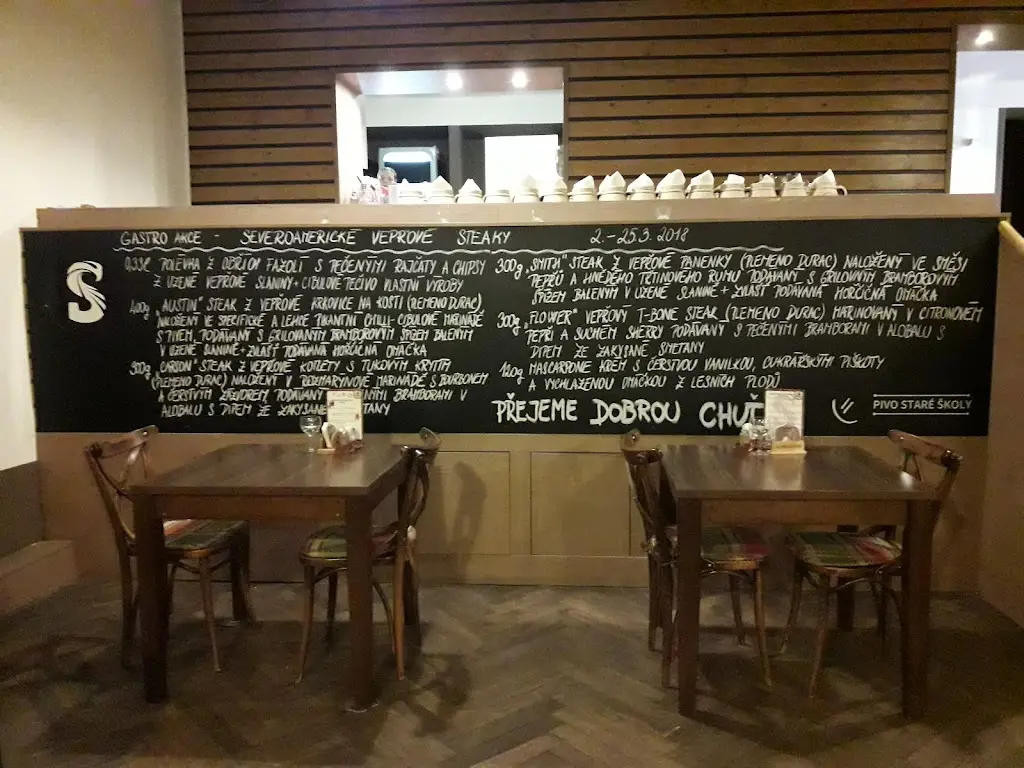 GASTRO AKCE - SEVEROAMERICKÉ VEPŘOVÉ STEAKY 2.-25.3. 2018
0,33l POLÉVKA Z OBŘÍCH FAZOLÍ S PEČENÝMI RAJČATY A CHIPSY
Z UZENÉ VEPŘOVÉ SLANINY + CIBULOVÉ PEČIVO VLASTNÍ VÝROBY
400g „AUSTIN" STEAK Z VEPŘOVÉ KRKOVICE NA KOSTI (PLEMENO DURAC)
NALOŽENÝ VE SPECIFICKÉ A LEHCE PIKANTNÍ CHILLI-CIBULOVÉ MARINÁDĚ
S PIVEM, PODÁVANÝ S GRILOVANÝM BRAMBOROVÝM ŠPÍZEM BALENÝM
V UZENÉ SLANINĚ + ZVLÁŠŤ PODÁVANÁ HOŘČIČNÁ OMÁČKA
300g „CARSON" STEAK Z VEPŘOVÉ KOTLETY S TUKOVÝM KRYTÍM
(PLEMENO DURAC) NALOŽENÝ V ROZMARÝNOVÉ MARINÁDĚ S BOURBONEM
A ČERSTVÝM ZÁZVOREM, PODÁVANÝ BRAMBORAMI V
ALOBALU S DIPEM ZE ZAKYSANÉ
300g „SMITH" STEAK Z VEPŘOVÉ PANENKY (PLEMENO DURAC) NALOŽENÝ VE SMĚSI
PEPŘŮ A HNĚDÉHO TŘTINOVÉHO RUMU PODÁVANÝ S GRILOVNÝM BRAMBOROVÝM
ŠPÍZEM BALENÝM V UZENÉ SLANINĚ + ZVLÁŠŤ PODÁVANÁ HOŘČIČNÁ OMÁČKA
300g „FLOWER" VEPŘOVÝ T-BONE STEAK (PLEMENO DURAC) MARINOVANÝ V CITRONOVÉM
PEPŘI A SUCHÉM SHERRY PODÁVANÝ S PEČENÝMI BRAMBORAMI V ALOBALU S
DIPEM ZE ZAKYSANÉ SMETANY
120g MASCARPONE KRÉM S ČERSTVOU VANILKOU, CUKRÁŘSKÝMI PIŠKOTY
A VYCHLAZENOU OMÁČKOU Z LESNÍCH PLODŮ
PŘEJEME DOBROU CHUŤ
PIVO STARÉ ŠKOLY